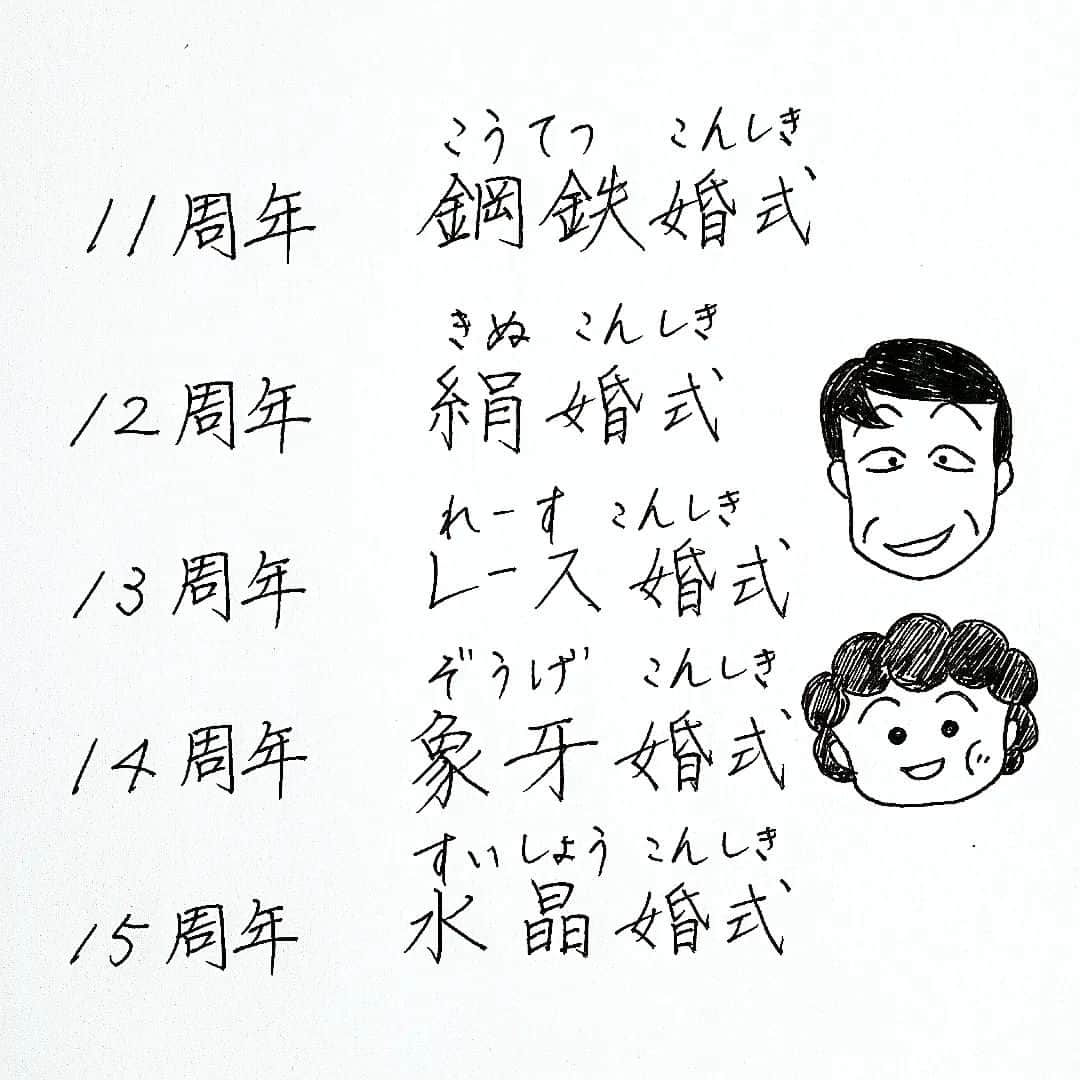 こうてつ こんしき
11周年 鋼鉄婚式
きぬ こんしき
12周年 絹婚式
れーす こんしき
13周年 レース婚式
ぞうげ こんしき
14周年 象牙婚式
すいしょう こんしき
15周年 水晶婚式